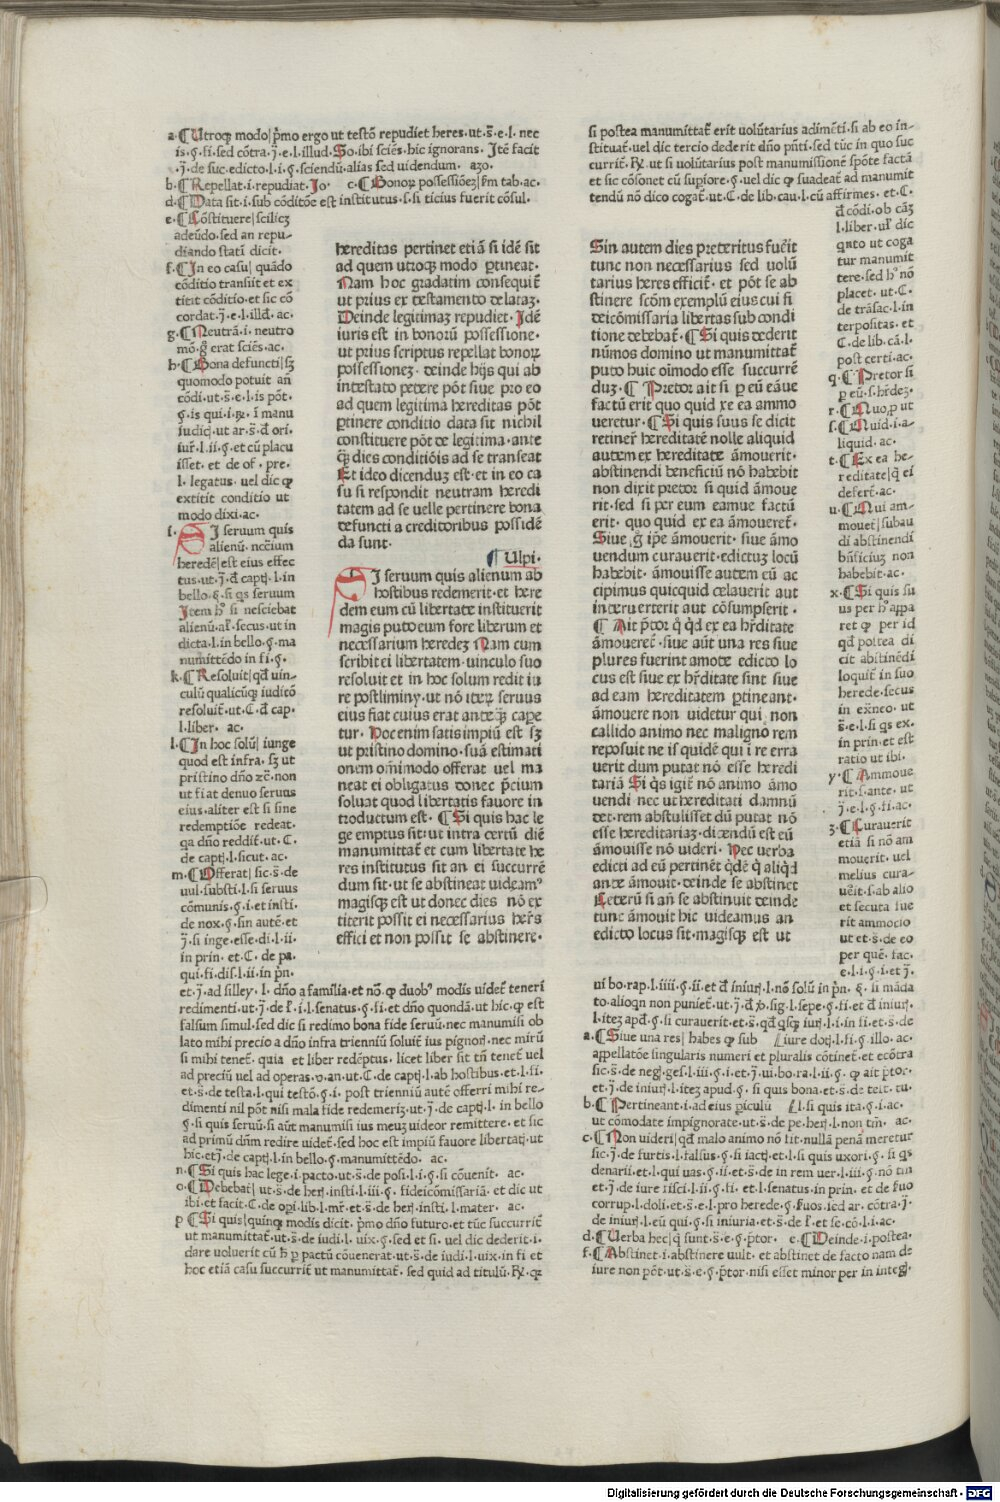 a·¶Utroqꝫ modo|pͥmo ergo ut testō repudiet heres·ut·s̄·e·l· nec
is·ꝯ·fi·sed cōtra·j̄·e·l·illud·So·ibi sciēs·hic ignorans· Itē facit
·j̄·de suc·edicto·l·i·ꝯ·sciendū·alias sed uidendum· azo·
b·¶Repellat·i·repudiat·Jo· c·¶Bonoꝝ possessiōez|ẜm tab·ac·
d·¶Data sit·i·sub cōditōe est institutus·s·si ticius fuerit cōsul·
e·¶Cōstituere|scilicꝫ
adeūdo·sed an repu-
diando statī dicit·
f·¶In eo casu| quādo
cōditio transiit et ex
titit cōditio·et sic cō
cordat·j̄·e·l·illd̄· ac·
g·¶Neutrā·i·neutro
mō·g̊ erat sciēs·ac·
h·¶Bona defuncti|sꝫ
quomodo potuit añ
cōdi·ut·s̄·e·l·is pōt·
ꝯ·is qui·i·ꝶ· ī manu
iudicꝭ·ut ar·s̄·d̄ ori·
iur̄·l·ii·ꝯ·et cū placu
isset· et de of· pre·
l·legatus· uel dic ꝙ
extitit conditio ut
modo dixi·ac·
i· SI seruum quis
alienū· nc̄cium
heredē|est eius effec
tus·ut·j̄·d̄ captꝭ·l·in
bello·ꝯ·si qs seruum
Item hͦ si nesciebat
alienū·al̄·secus·ut in
dicta·l·in bello·ꝯ·ma
numittēdo in fi·ꝯ·
k·¶Resoluit|qd̄ uin-
culū qualicūqꝫ iuditō
resoluit̄·ut·C·d̄ cap·
l·liber· ac·
l·¶In hoc solū| iunge
quod est infra· sꝫ ut
pristino dño ꝛc̄·non
ut fiat denuo seruus
eius·aliter est si sine
redemptiōe redeat·
qa dño reddit̄·ut·C·
de captꝭ·l·sicut·ac·
m·¶Offerat|sic·s̄·de
uul·substi·l·si seruus
cōmunis·ꝯ·i·et insti·
de nox·ꝯ·sin autē·et
j̄·si inge·esse·di·l·ii·
in prin· et·C· de pa·
qui·fi·dis·l·ii·in pn̄·
et·j̄·ad silley· l· dño a familia·et nō·ꝙ duobꝰ modis uidet̄ teneri
redimenti·ut·j̄·de r̄·i·l·senatus·ꝯ·fi·et dño quondā·ut hic·ꝙ est
falsum simul·sed dic si redimo bona fide seruū·nec manumisi ob
lato mihi precio a dño infra trienniū soluit̄ ius pignorꝭ·nec mirū
si mihi tenet̄· quia et liber redēptus· licet liber sit tn̄ tenet̄ uel
ad preciū uel ad operas·v·an·ut·C·de captꝭ·l·ab hostibus·et·l·fi·
et·s̄·de testa·l·qui testō·ꝯ·i· post trienniū autē offerri mihi re-
dimenti nil pōt nisi mala fide redemerīꝫ·ut·j̄·de captꝭ·l· in bello
ꝯ·si quis seruū·si aūt manumisi ius meuꝫ uideor remittere· et sic
ad primū dn̄m redire uidet̄·sed hoc est impiū fauore libertatꝭ·ut
hic·et·j̄·de captꝭ·l·in bello·ꝯ·manumittēdo· ac·
n·¶Si quis hac lege·i·pacto·ut·s̄·de posi·l·i·ꝯ·si cōuenit· ac·
o·¶Debebat| ut·s̄·de herꝭ·insti·l·iii·ꝯ· fideicōmissariā· et dic ut
ibi·et facit·C·de opi·lib·l·mr̄·et·s̄·de herꝭ·insti·l·mater· ac·
p ¶Si quis|quinqꝫ modis dicit· pͥmo dño futuro·et tūc succurrit̄
ut manumittat̄·ut·s̄·de iudi·l· uix·ꝯ·sed et si· uel dic dederit·i·
dare uoluerit cū h̄ ꝑ pactū cōuenerat·ut·s̄·de iudi·l·uix·in fi et
hoc etiā casu succurrit̄ ut manumittat̄· sed quid ad titulū·ꝶ· qꝛ
hereditas pertinet etiā si idē sit
ad quem utroqꝫ modo ꝑtineat·
Nam hoc gradatim consequit̄
ut prius ex testamento delataꝫ·
Deinde legitimaꝫ repudiet· Idē
iuris est in bonorū possessione·
ut prius scriptus repellat bonoꝝ
possessionez· deinde hijs qui ab
intestato petere pōt siue pro eo
ad quem legitima hereditas pōt
ꝑtinere conditio data sit nichil
constituere pōt de legitima·ante
qꝫ dies conditiōis ad se transeat
Et ideo dicenduꝫ est·et in eo ca
su si respondit neutram heredi
tatem ad se uelle pertinere bona
defuncti a creditoribus possidē
da sunt·
¶ Ulpi·
SI seruum quis alienum ab
hostibus redemerit·et here
dem eum cū libertate instituerit
magis puto eum fore liberum et
necessarium heredeꝫ Nam cum
scribit ei libertatem·uinculo suo
resoluit et in hoc solum redit iu
re postliminy·ut nō iteꝝ seruus
eius fiat cuius erat anteqꝫ cape
tur· Hoc enim satis impiū est sꝫ
ut pristino domino·suā estimati
onem om̄imodo offerat uel ma
neat ei obligatus donec p̄cium
soluat quod libertatis fauore in
troductum est· ¶ Si quis hac le
ge emptus sit·ut intra certū diē
manumittat̄ et cum libertate he
res institutus sit an ei succurrē
dum sit·ut se abstineat uideamꝰ
magisqꝫ est ut donec dies nō ex
titerit possit ei necessarius her̄s
effici et non possit se abstinere·
si postea manumittat̄ erit volūtarius adimēti·si ab eo in-
stituat̄·uel dic tercio dederit dño pn̄ti·sed tūc in quo suc
currit̄·ꝶ·ut si volūtarius post manumissionē spōte factā
et sic cōsonet cū suꝑiore·ꝯ·uel dic ꝙ suadeat̄ ad manumit
tendū nō dico cogat̄·ut·C·de lib·cau·l·cū affirmes· et·C·
d̄ cōdi·ob cāꝫ
l·liber·ul̄ dic
qn̄to ut coga
tur manumit
tere·sed hͦ nō
placet· ut·C·
de trāsac·l·in
terpositas· et
C·de lib·cā·l·
post certi·ac·
q·¶Pretor si
ꝑ eū·s·hr̄deꝫ·
r·¶Quo|ꝓ ut
s·¶Quid·i·a-
liquid· ac·
t·¶Ex ea he-
reditate|q̄ ei
defert̄·ac·
u·¶Qui am-
mouet|subau
di abstinendi
bn̄ficiuꝫ non
habebit·ac·
x·¶Si quis su
us per hͦ appa
ret ꝙ per id
qd̄ postea di
cit abstinēdi
loquit̄ in suo
herede·secus
in ex̄neo· ut
s̄·e·l·si qs ex·
in prin·et est
ratio ut ibi·
y·¶Ammoue
rit·s·ante· ut
j̄·e·l·ꝯ·fi·ac·
z·¶Curauerit
etiā si nō am
mouerit· uel
melius cura-
ue̅it·s·ab alio
et secuta fue
rit ammocio
ut et·s̄·de eo
per quē· fac·
e·l·i·ꝯ·i·et j̄·
ui bo·rap·l·iiii·ꝯ·ii·et d̄ iniurꝭ·l·nō solū in pn̄· ꝯ· si māda
to·alioqn non puniet̄·ut·j̄·d̄ ꝟo·sig·l·sepe·ꝯ·fi·et d̄ iniurꝭ·
l·iteꝫ apd̄·ꝯ·si curauerit·et·s̄·qd̄ qsqꝫ iurꝭ·l·i·in fi·et·s̄·de
a·¶Siue una res| habes ꝙ sub iure dotꝭ·l·fi·ꝯ·illo·ac·
appellatōe singularis numeri et pluralis cōtinet̄·et ecōtra
sic·s̄·de negꝭ·ges·l·iii·ꝯ·i·et·j̄·ui·bo·ra·l·ii·ꝯ· ꝙ ait p̄tor·
et·j̄·de iniurꝭ·l·iteꝫ apud·ꝯ· si quis bona·et·s̄·de testi·tu·
b·¶Pertineant·i·ad eius ꝑiculū l·si quis ita·ꝯ·i·ac·
ut cōmodate impignorate·ut·s̄·de pe·herꝭ·l·non tm̄· ac·
c·¶Non uideri|qd̄ malo animo nō sit·nullā penā meretur
sic·j̄·de furtis·l·falsus·ꝯ·si iactꝭ·et·l·si quis uxori·ꝯ· si qs
denarii·et·l·qui uas·ꝯ·ii·et·s̄·de in rem uer·l·iii·ꝯ·nō tm̄
et·j̄·de iure fisci·l·ii·ꝯ·fi· et·l·senatus·in prin· et·de ẜuo
corrup·l·doli·et·s̄·e·l·pro herede·ꝯ·ẜuos·sed ar· cōtra·j̄·
de iniurꝭ·l·eū qui·ꝯ·si iniuria·et·s̄·de r̄·et se·cō·l·i·ac·
d·¶Uerba hec|q̄ sunt·s̄·e·ꝯ·p̄tor· e·¶Deinde·i·postea·
f·¶Abstinet·i·abstinere uult· et abstinet de facto nam de
iure non pōt·ut·s̄·e·ꝯ·p̄tor·nisi esset minor per in integꝭ·
Sin autem dies preteritus fue̅it
tunc non necessarius sed uolū
tarius heres efficit̄· et pōt se ab
stinere scōm exemplū eius cui fi
deicōmissaria libertas sub condi
tione debebat̄·¶Si quis dederit
nūmos domino ut manumittat̄
puto huic oīmodo esse succurrē
duꝫ·¶ Pretor ait si ꝑ eū eāue
factū erit quo quid ex ea ammo
ueretur·¶Si quis suus se dicit
retiner̄ hereditatē nolle aliquid
autem ex hereditate āmouerit·
abstinendi beneficiū nō habebit
non dixit pretor si quid āmoue
rit·sed si per eum eamue factū
erit· quo quid ex ea āmoueret̄·
Siue·g̊ ip̄e āmouerit· siue āmo
uendum curauerit·edictuꝫ locū
habebit· āmouisse autem eū ac
cipimus quicquid celauerit aut
interuerterit aut cōsumpserit·
¶ Ait p̄tor q̊ qd̄ ex ea hr̄ditate
āmoueret̄·siue aūt una res siue
plures fuerint amote edicto lo
cus est siue ex hr̄ditate sint siue
ad eam hereditatem ꝑtineant·
āmouere non uidetur qui non
callido animo nec maligno rem
reposuit ne is quidē qui ī re erra
uerit dum putat nō esse heredi
tariā Si qs igit̄ nō animo āmo
uendi nec ut hereditati damnū
det·rem abstulisset dū putat nō
esse hereditariaꝫ·dicēdū est eū
āmouisse nō uideri· Hec uerba
edicti ad eū pertinēt qͥdē q̊ aliqͥd
ante āmouit· deinde se abstinet
Ceterū si añ se abstinuit deinde
tunc āmouit hic uideamus an
edicto locus sit·magisqꝫ est ut
Digitalisierung gefördert durch die Deutsche Forschungsgemeinschaft - DFG